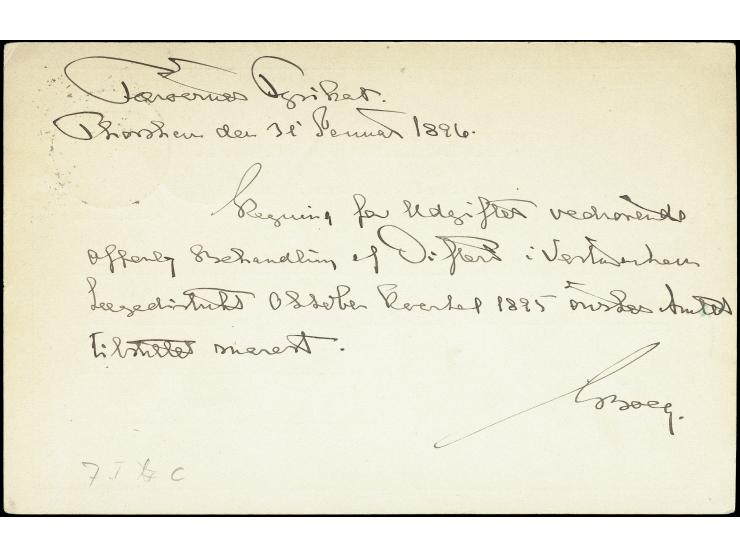 Færøernes Fysikat.
Thorshavn den 31 Januar 1896.
Regning for Udgifter vedrørende
offenlg Behandling af Difteri i Vestmanhavn
Lægedistrikt Oktober Kvartal 1895 ønskes Amtet
tilstillet snarest.
Boeg.
7 I C